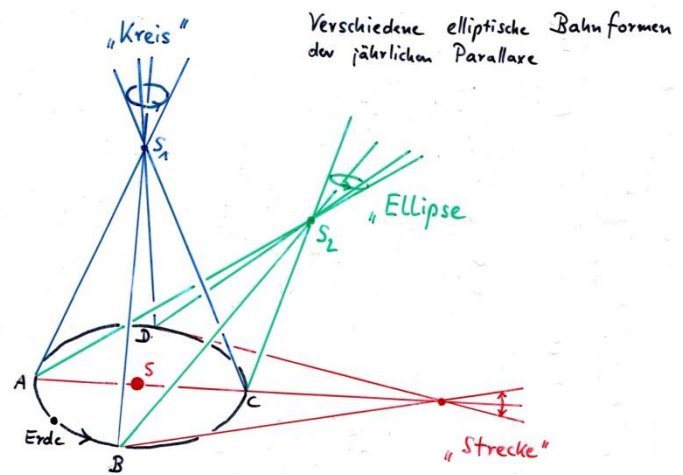 „Kreis"
Verschiedene elliptische Bahnformen
der jährlichen Parallaxe
S₁
„Ellipse
S₂
D
S
A
C
Erde
B
„Strecke"